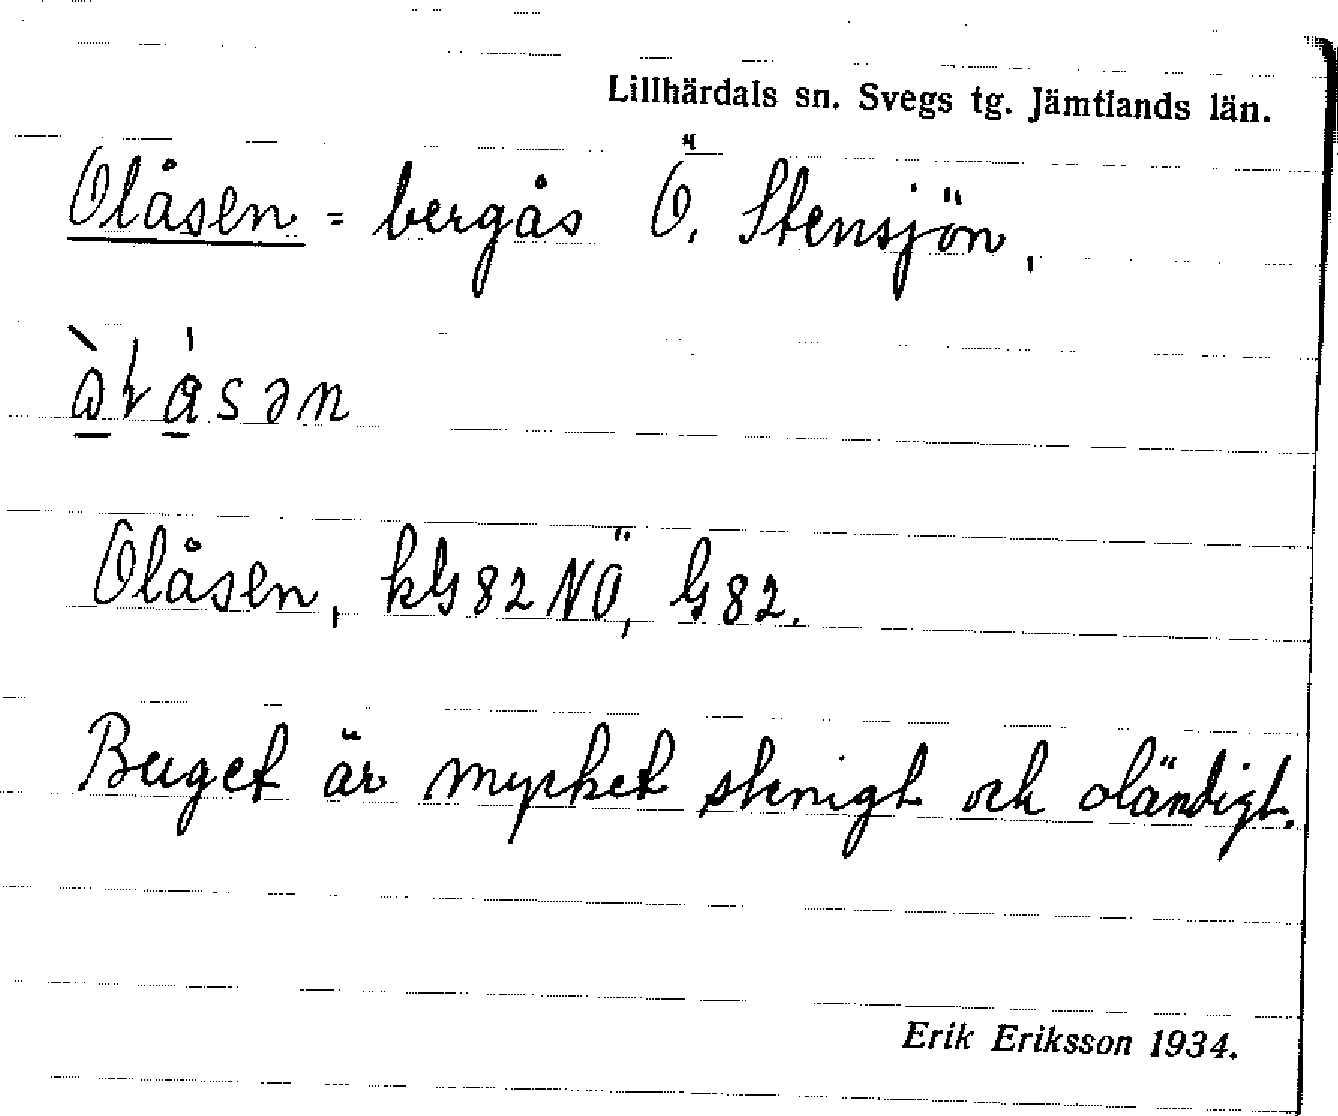 Lillhärdals sn. Svegs tg. Jämtlands län.
Olåsen = bergås Ö. Stensjön,
Olåsen, kG82NÖ, G82.
Berget är mycket stenigt och oländigt.
Erik Eriksson 1934.